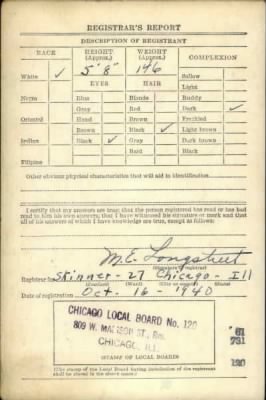 REGISTRAR'S REPORT
DESCRIPTION OF REGISTRANT
RACE HEIGHT (Approx.) WEIGHT (Approx.) COMPLEXION
White ✓ 5' 8" 146 Sallow
Light
EYES HAIR
Negro Blue Blonde Ruddy
Gray Red Dark ✓
Oriental Hazel Brown Freckled
Brown Black ✓ Light brown
Indian Black ✓ Gray Dark brown
Bald Black
Filipino
Other obvious physical characteristics that will aid in identification
I certify that my answers are true; that the person registered has read or has had
read to him his own answers; that I have witnessed his signature or mark and that
all of his answers of which I have knowledge are true, except as follows:
M.E. Longstreet
(Signature of registrar)
Registrar for Skinner - 27 Chicago - Ill
(Precinct) (Ward) (City or county) (State)
Date of registration Oct - 16 - 1940
CHICAGO LOCAL BOARD No. 120
809 W. MADISON ST., Rm.
CHICAGO, ILL.
61
731
120
(STAMP OF LOCAL BOARD)
(The stamp of the Local Board having jurisdiction of the registrant
shall be placed in the above space.)